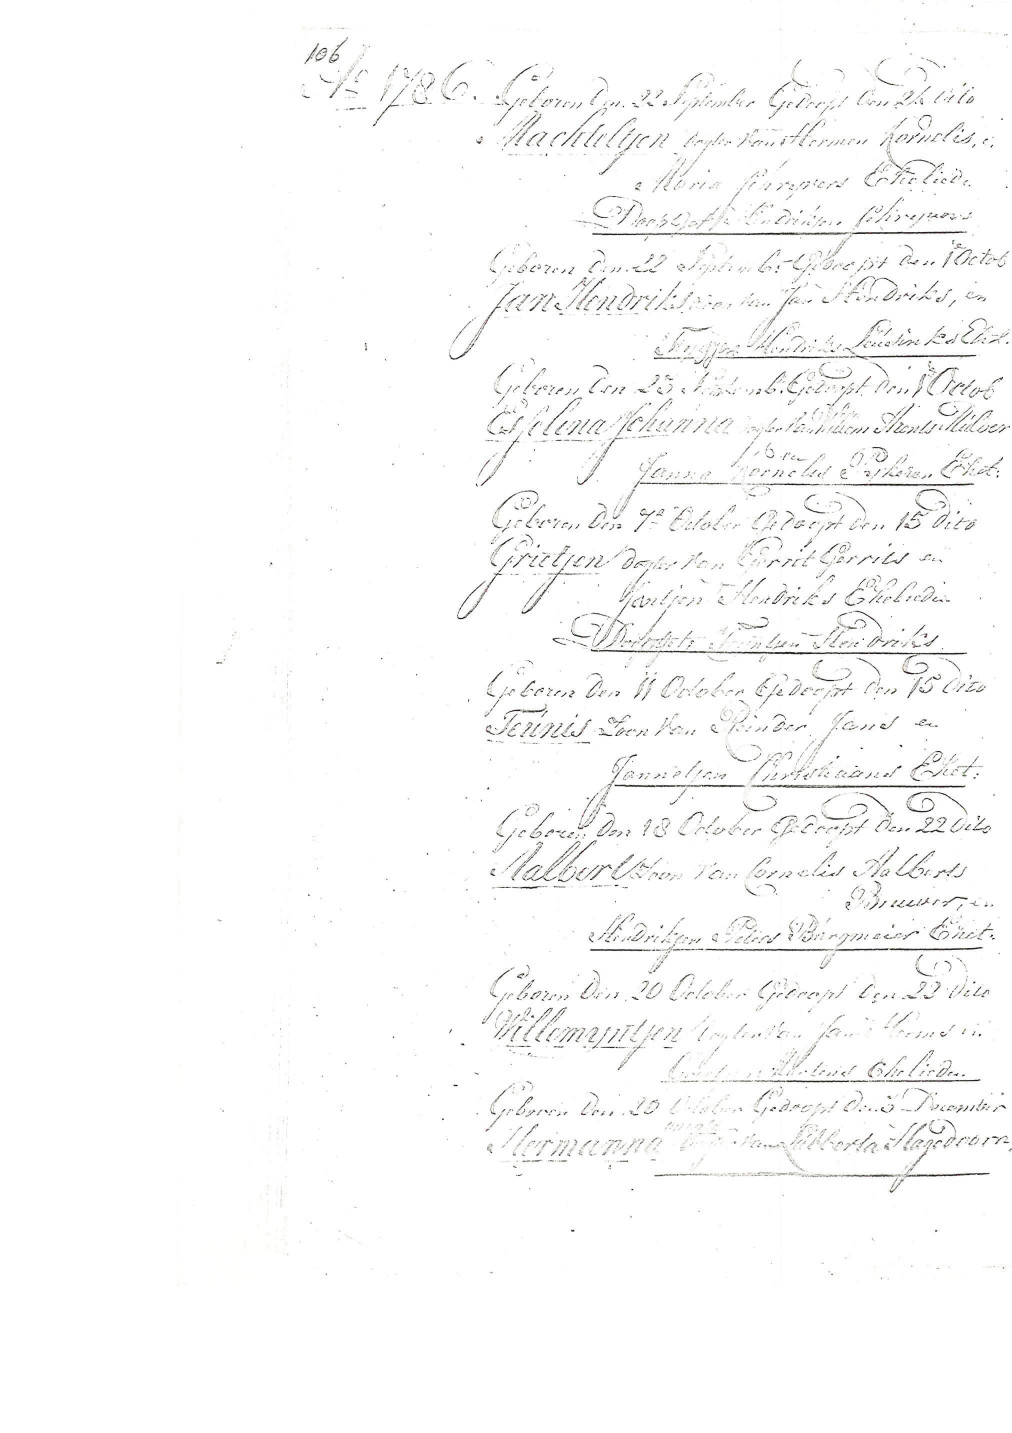 106
Ao 1786. Geboren den 22 September Gedoopt den 24 Dito
Machteltjen dogter van Hermen Kornelis, e.
Maria Schrepers Ehelieden
Hendrikjen Schrepers
Geboren den 22 Septemb: Gedoopt den 1e Octob
Jan Hendriks zoon van Jan Hendriks, en
Hendriks Ehel.
Geboren den 23 Septemb. Gedoopt den 1e Octob
Esselina Johanna dogter van Willem Arents Milver
Janna Kornelis Ehel:
Geboren den 7e October Gedoopt den 15 Dito
Grietjen dogter van Gerrit Gerrits en
Jantjen Hendriks Ehelieden
Hendriks
Geboren den 11 October Gedoopt den 15 Dito
Teunis Zoon van Reinder Jans en
Jannetjen Christiaans Ehel:
Geboren den 18 October Gedoopt den 22 Dito
Aalbert Zoon van Cornelis Aalberts
Brouwer, en
Hendrikjen Peters Burgmeier Ehel:
Geboren Den 20 October Gedoopt Den 22 Dito
Willemyntjen dogter van Jan Herms en
Ehelieden
Geboren Den 20 October Gedoopt den 3 December
Hermanna dogt: van Lubberta Hagedoorn